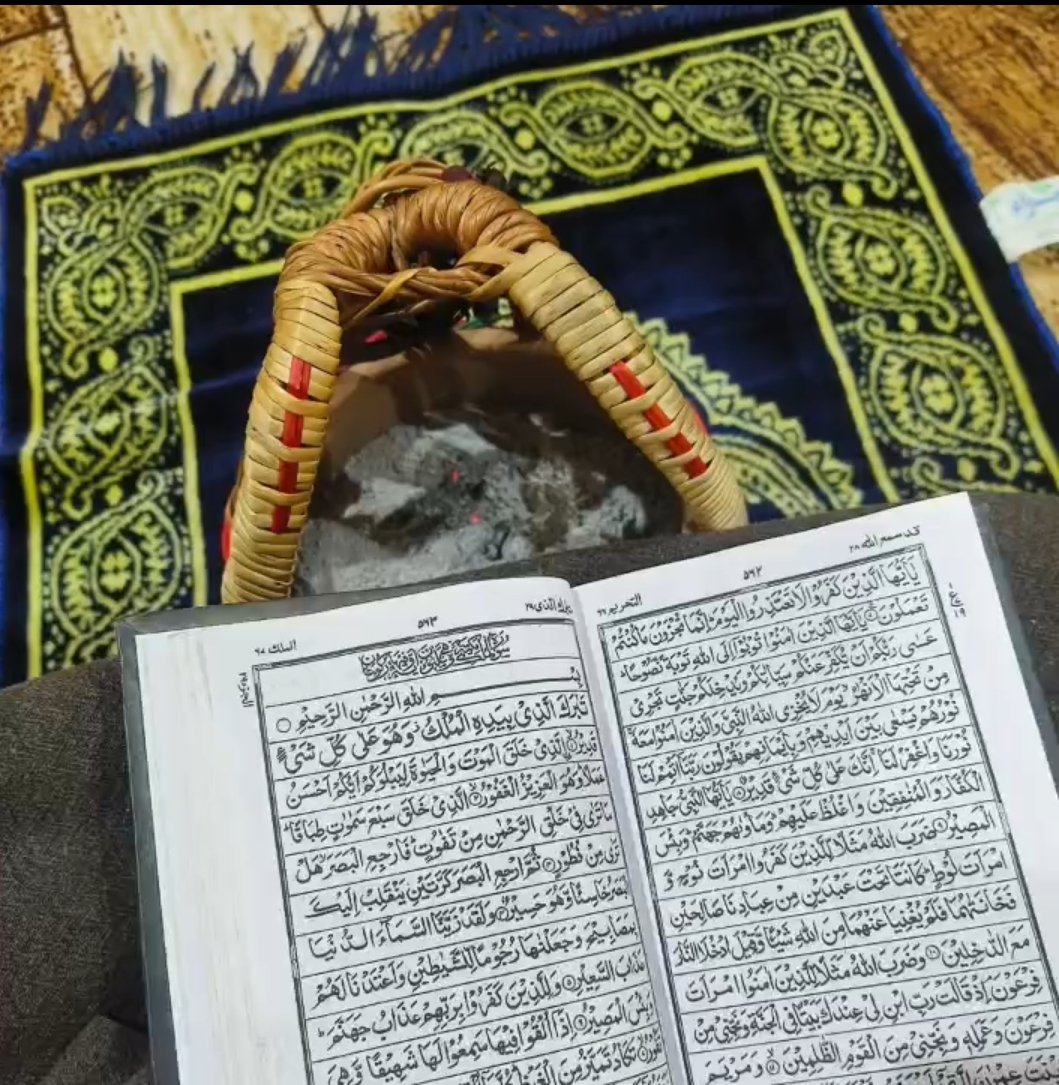 قد سمع الله ٢٨
٥٦٢
التحريم ٦٦
يٰۤاَيُّهَا الَّذِيْنَ كَفَرُوْا لَا تَعْتَذِرُوا الْيَوْمَ اِنَّمَا تُجْزَوْنَ مَا كُنْتُمْ
تَعْمَلُوْنَ يٰۤاَيُّهَا الَّذِيْنَ اٰمَنُوْا تُوْبُوْۤا اِلَى اللّٰهِ تَوْبَةً نَّصُوْحًا
عَسٰى رَبُّكُمْ اَنْ يُّكَفِّرَ عَنْكُمْ سَيِّاٰتِكُمْ وَيُدْخِلَكُمْ جَنّٰتٍ تَجْرِيْ
مِنْ تَحْتِهَا الْاَنْهٰرُ يَوْمَ لَا يُخْزِي اللّٰهُ النَّبِيَّ وَالَّذِيْنَ اٰمَنُوْا مَعَهٗ
نُوْرُهُمْ يَسْعٰى بَيْنَ اَيْدِيْهِمْ وَبِاَيْمَانِهِمْ يَقُوْلُوْنَ رَبَّنَاۤ اَتْمِمْ لَنَا
نُوْرَنَا وَاغْفِرْ لَنَا اِنَّكَ عَلٰى كُلِّ شَيْءٍ قَدِيْرٌ يٰۤاَيُّهَا النَّبِيُّ جَاهِدِ
الْكُفَّارَ وَالْمُنٰفِقِيْنَ وَاغْلُظْ عَلَيْهِمْ وَمَاْوٰىهُمْ جَهَنَّمُ وَبِئْسَ
الْمَصِيْرُ ضَرَبَ اللّٰهُ مَثَلًا لِّلَّذِيْنَ كَفَرُوا امْرَاَتَ نُوْحٍ وَّ
امْرَاَتَ لُوْطٍ كَانَتَا تَحْتَ عَبْدَيْنِ مِنْ عِبَادِنَا صَالِحَيْنِ
فَخَانَتٰهُمَا فَلَمْ يُغْنِيَا عَنْهُمَا مِنَ اللّٰهِ شَيْـًٔا وَّقِيْلَ ادْخُلَا النَّارَ
مَعَ الدّٰخِلِيْنَ وَضَرَبَ اللّٰهُ مَثَلًا لِّلَّذِيْنَ اٰمَنُوا امْرَاَتَ
فِرْعَوْنَ اِذْ قَالَتْ رَبِّ ابْنِ لِيْ عِنْدَكَ بَيْتًا فِي الْجَنَّةِ وَنَجِّنِيْ مِنْ
فِرْعَوْنَ وَعَمَلِهٖ وَنَجِّنِيْ مِنَ الْقَوْمِ الظّٰلِمِيْنَ وَمَرْيَمَ
تبٰرك الذي ٢٩
٥٦٣
الملك ٦٧
بِسْمِ اللّٰهِ الرَّحْمٰنِ الرَّحِيْمِ
تَبٰرَكَ الَّذِيْ بِيَدِهِ الْمُلْكُ وَهُوَ عَلٰى كُلِّ شَيْءٍ
قَدِيْرٌ الَّذِيْ خَلَقَ الْمَوْتَ وَالْحَيٰوةَ لِيَبْلُوَكُمْ اَيُّكُمْ اَحْسَنُ
عَمَلًا وَهُوَ الْعَزِيْزُ الْغَفُوْرُ الَّذِيْ خَلَقَ سَبْعَ سَمٰوٰتٍ طِبَاقًا
مَا تَرٰى فِيْ خَلْقِ الرَّحْمٰنِ مِنْ تَفٰوُتٍ فَارْجِعِ الْبَصَرَ هَلْ
تَرٰى مِنْ فُطُوْرٍ ثُمَّ ارْجِعِ الْبَصَرَ كَرَّتَيْنِ يَنْقَلِبْ اِلَيْكَ
الْبَصَرُ خَاسِئًا وَّهُوَ حَسِيْرٌ وَلَقَدْ زَيَّنَّا السَّمَآءَ الدُّنْيَا
بِمَصَابِيْحَ وَجَعَلْنٰهَا رُجُوْمًا لِّلشَّيٰطِيْنِ وَاَعْتَدْنَا لَهُمْ
عَذَابَ السَّعِيْرِ وَلِلَّذِيْنَ كَفَرُوْا بِرَبِّهِمْ عَذَابُ جَهَنَّمَ
وَبِئْسَ الْمَصِيْرُ اِذَاۤ اُلْقُوْا فِيْهَا سَمِعُوْا لَهَا شَهِيْقًا وَّهِيَ
تَفُوْرُ تَكَادُ تَمَيَّزُ مِنَ الْغَيْظِ